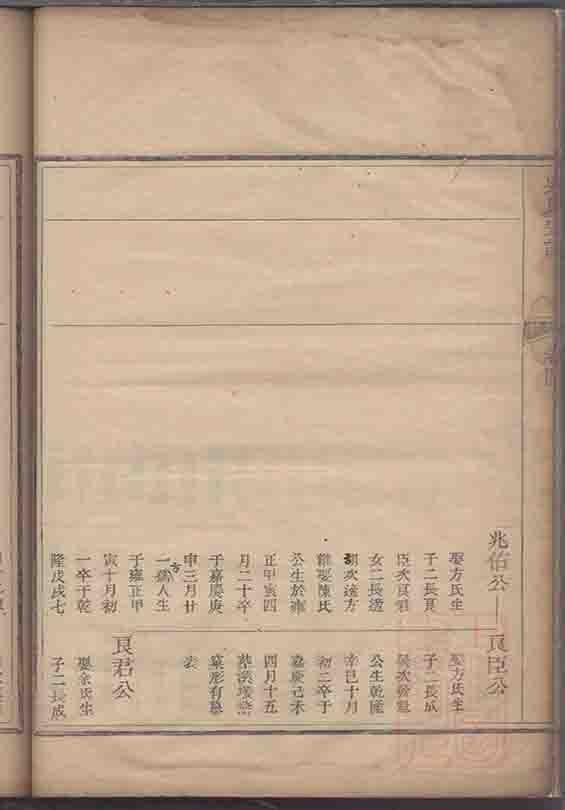 兆伯公
良臣公
娶方氏生
子二長良
臣次良君
女二長適
胡次適方
繼娶陳氏
公生於雍
正甲寅四
月二十卒
于嘉慶庚
申三月廿
一方孺人生
于雍正甲
寅十月初
一卒于乾
隆戊戌七
娶方氏生
子二長成
公生乾隆
辛巳十月
初二卒于
嘉慶己未
四月十五
葬
墓形有墓
表
良君公
娶余氏生
子二長成